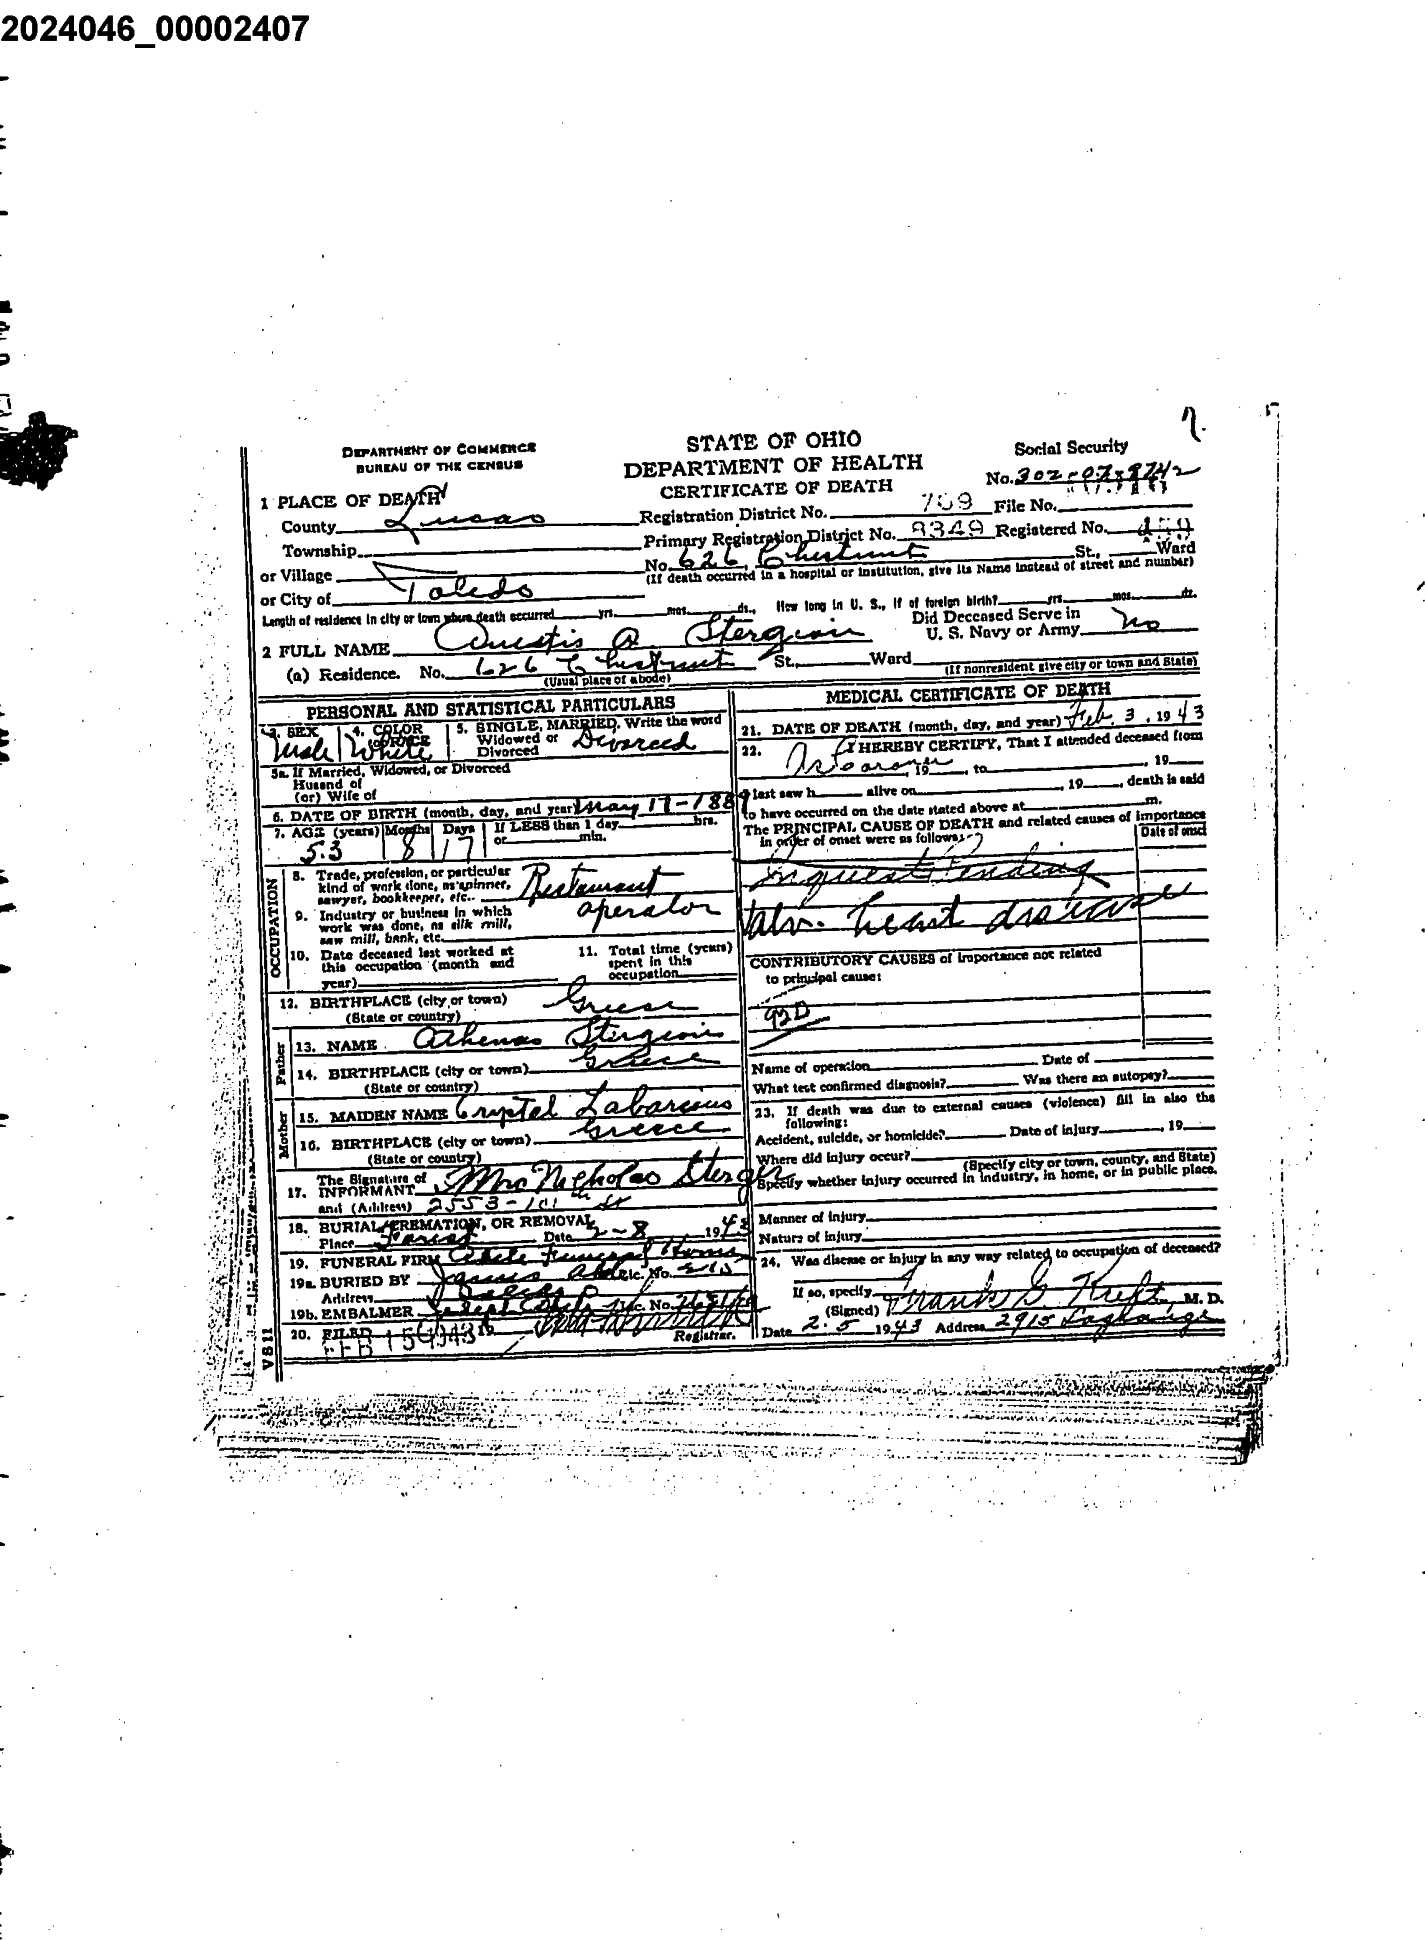 2024046_00002407
DEPARTMENT OF COMMERCE
BUREAU OF THE CENSUS
STATE OF OHIO
DEPARTMENT OF HEALTH
CERTIFICATE OF DEATH
Social Security
No. 302-07-9742
1 PLACE OF DEATH
County Lucas
Registration District No. 769 File No.
Township
Primary Registration District No. 8349 Registered No.
or Village
No. 626 Chestnut St., Ward
(If death occurred in a hospital or institution, give its Name instead of street and number)
or City of Toledo
Length of residence in city or town where death occurred yrs. mos. ds., How long in U. S., if of foreign birth? yrs. mos. ds.
2 FULL NAME A Stergiou
Did Deceased Serve in
U. S. Navy or Army No
(a) Residence. No. 626 Chestnut St., Ward
(Usual place of abode)
(If nonresident give city or town and State)
PERSONAL AND STATISTICAL PARTICULARS
3. SEX Male
4. COLOR or RACE White
5. SINGLE, MARRIED, Write the word
Widowed or
Divorced Divorced
5a. If Married, Widowed, or Divorced
Husand of
(or) Wife of
6. DATE OF BIRTH (month, day, and year) May 17-1889
7. AGE (years) Months Days If LESS than 1 day hrs.
or min.
53 8 17
OCCUPATION
8. Trade, profession, or particular
kind of work done, as spinner,
sawyer, bookkeeper, etc. Restaurant
9. Industry or business in which
work was done, as silk mill,
saw mill, bank, etc. operator
10. Date deceased last worked at
this occupation (month and
year)
11. Total time (years)
spent in this
occupation
12. BIRTHPLACE (city or town)
(State or country) Greece
Father
13. NAME Athenas Stergiou
14. BIRTHPLACE (city or town) Greece
(State or country)
Mother
15. MAIDEN NAME Crystal
16. BIRTHPLACE (city or town) Greece
(State or country)
17. The Signature of
INFORMANT Mrs Nicholas
and (Address) 2553-101 th St
18. BURIAL, CREMATION, OR REMOVAL
Place Forest Date 2-8 1943
19. FUNERAL FIRM Abele Funeral Home
19a. BURIED BY James Abele Lic. No.
Address Toledo O
19b. EMBALMER Joseph Lic. No.
20. FILED FEB 15 1943 19
Registrar.
V S 11
MEDICAL CERTIFICATE OF DEATH
21. DATE OF DEATH (month, day, and year) Feb. 3, 1943
22. I HEREBY CERTIFY, That I attended deceased from
As coroner, 19 to 19
I last saw h alive on 19, death is said
to have occurred on the date stated above at m.
The PRINCIPAL CAUSE OF DEATH and related causes of importance
in order of onset were as follows:
Date of onset
Inquest Pending
Valv. heart disease
CONTRIBUTORY CAUSES of importance not related
to principal cause:
92D
Name of operation Date of
What test confirmed diagnosis? Was there an autopsy?
23. If death was due to external causes (violence) fill in also the
following:
Accident, suicide, or homicide? Date of injury, 19
Where did injury occur?
(Specify city or town, county, and State)
Specify whether injury occurred in industry, in home, or in public place.
Manner of injury
Nature of injury
24. Was disease or injury in any way related to occupation of deceased?
If so, specify
(Signed) Frank G Kreft, M. D.
Date 2-5 1943 Address 2915 Lagrange